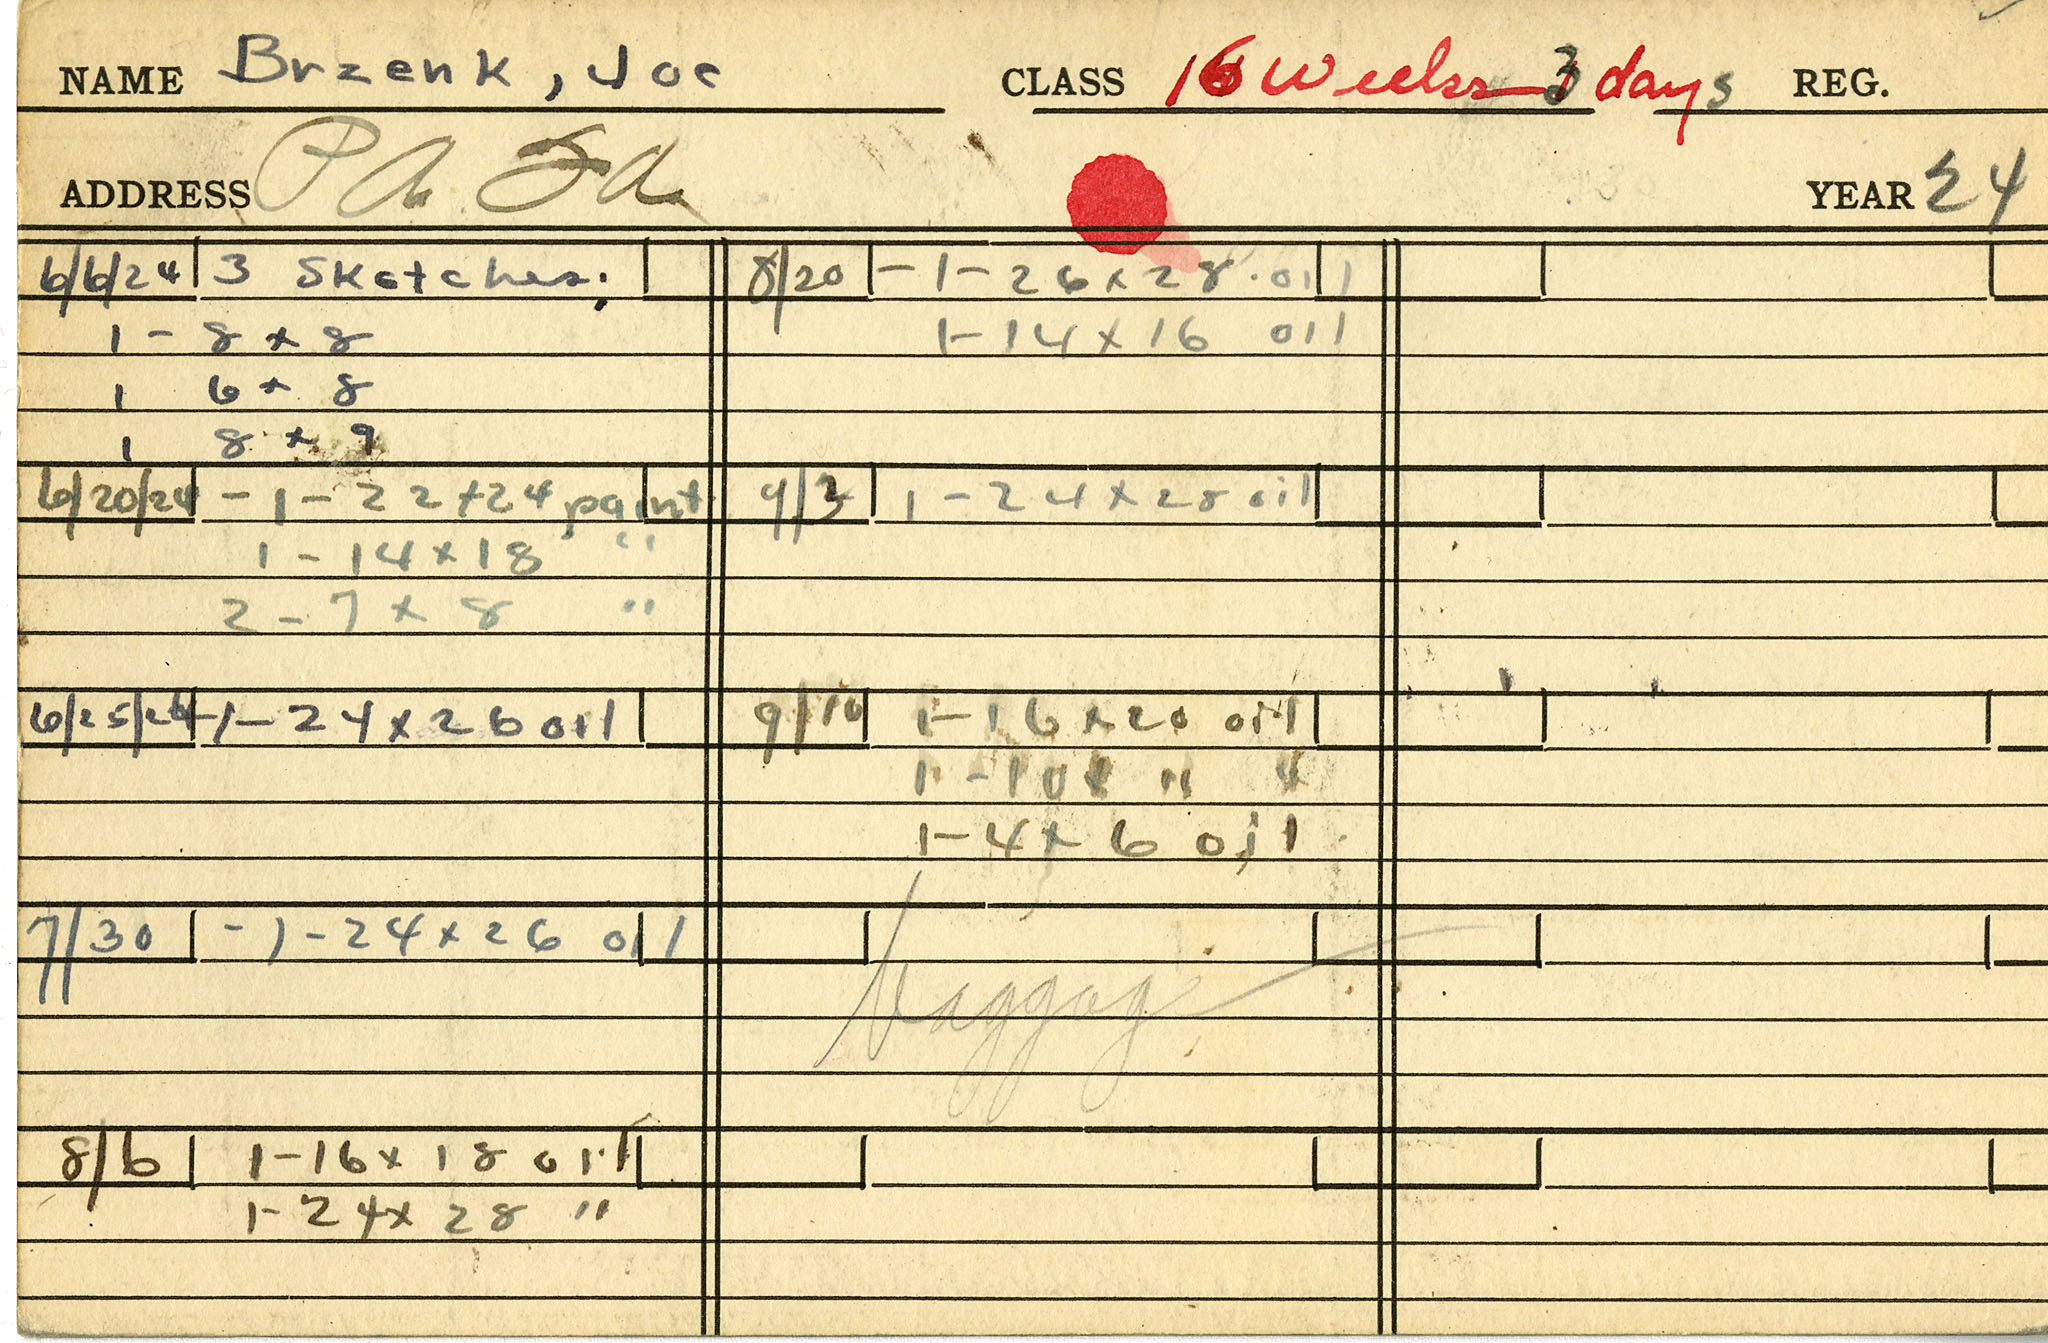 NAME Brzenk, Joe CLASS 16 Weeks 3 days REG.
ADDRESS Pa Fa YEAR 24
6/6/24 3 Sketches:
1 - 8 x 8
1 6 x 8
1 8 x 9
6/20/24 - 1 - 22 x 24 paint
1 - 14 x 18 "
2 - 7 x 8 "
6/25/24 - 1 - 24 x 26 oil
7/30 - 1 - 24 x 26 oil
8/6 1 - 16 x 18 oil
1 - 24 x 28 "
8/20 - 1 - 26 x 28 . oil
1 - 14 x 16 oil
9/3 1 - 24 x 28 oil
9/10 1 - 16 x 20 oil
1 - 10 x " "
1 - 4 x 6 oil
baggage